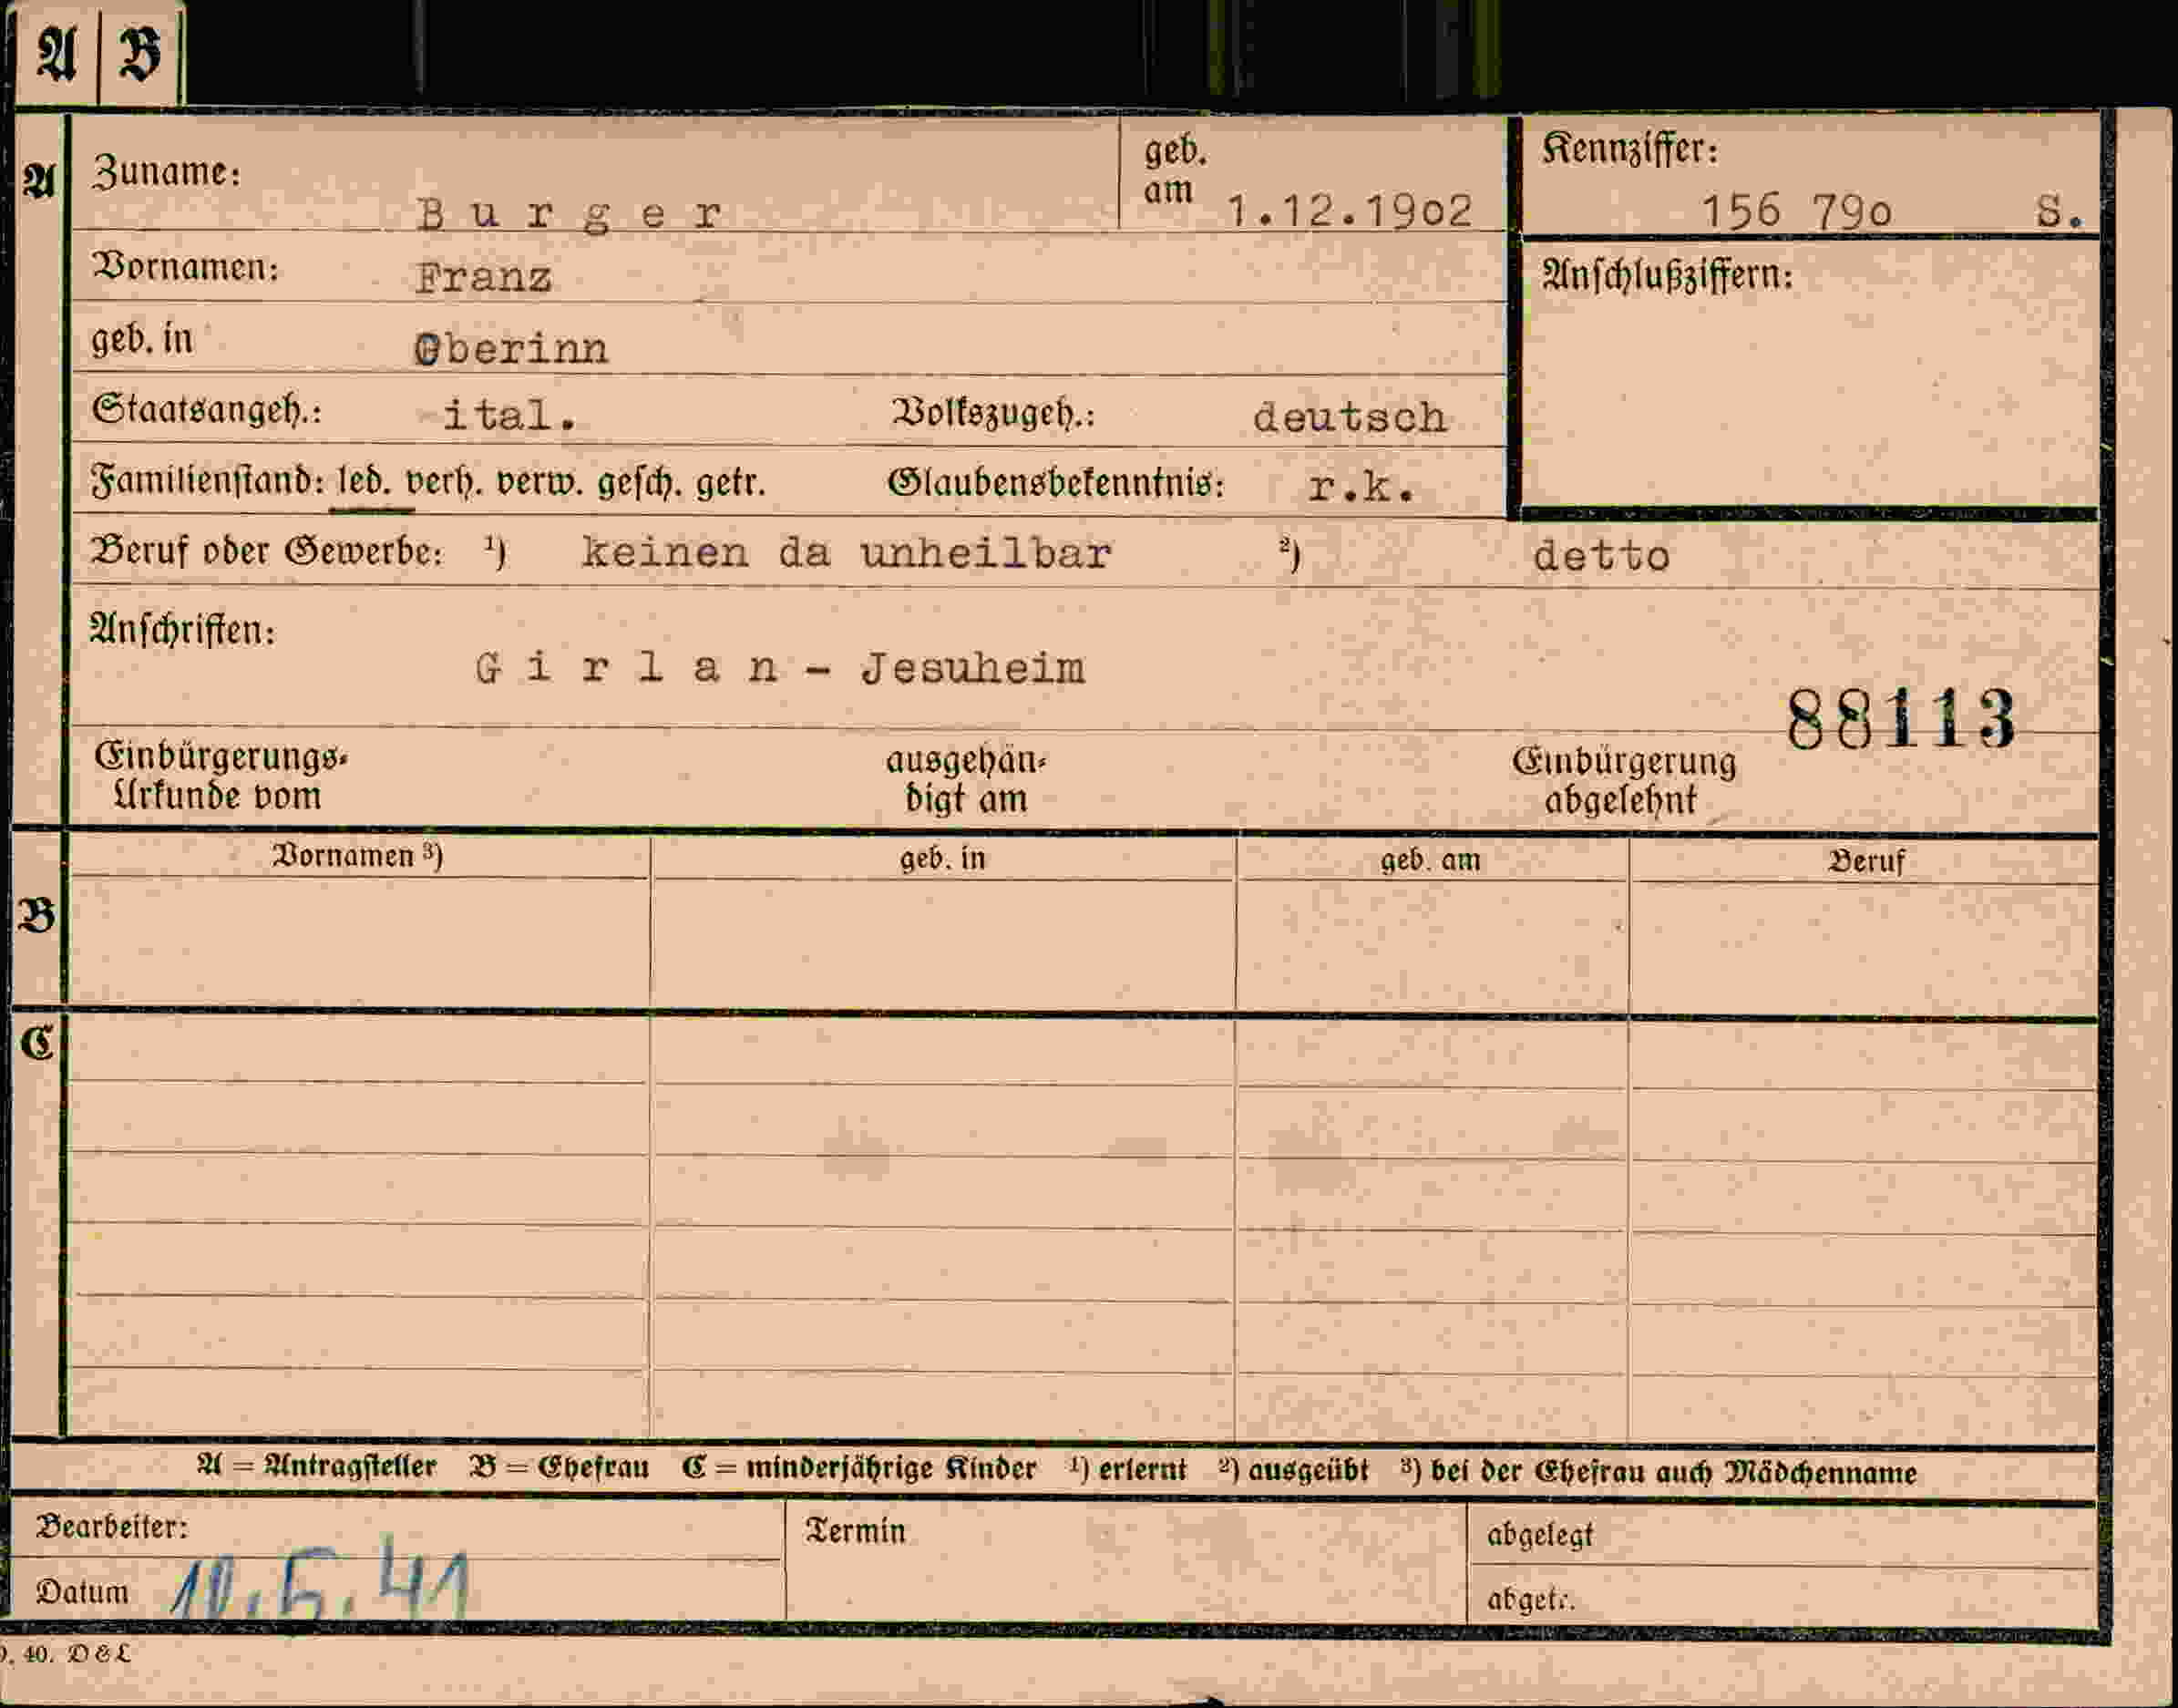 A B
A Zuname: Burger geb. am 1.12.1902 Kennziffer: 156 790 S.
Vornamen: Franz Anschlußziffern:
geb. in Oberinn
Staatsangeh.: ital. Volkszugeh.: deutsch
Familienstand: led. verh. verw. gesch. getr. Glaubensbekenntnis: r.k.
Beruf oder Gewerbe: ¹) keinen da unheilbar ²) detto
Anschriften:
Girlan - Jesuheim
88113
Einbürgerungs- ausgehän- Einbürgerung
Urkunde vom digt am abgelehnt
Vornamen ³) geb. in geb. am Beruf
B
C
A = Antragsteller B = Ehefrau C = minderjährige Kinder ¹) erlernt ²) ausgeübt ³) bei der Ehefrau auch Mädchenname
Bearbeiter: Termin abgelegt
Datum 5.41 abgetr.
40. D & L